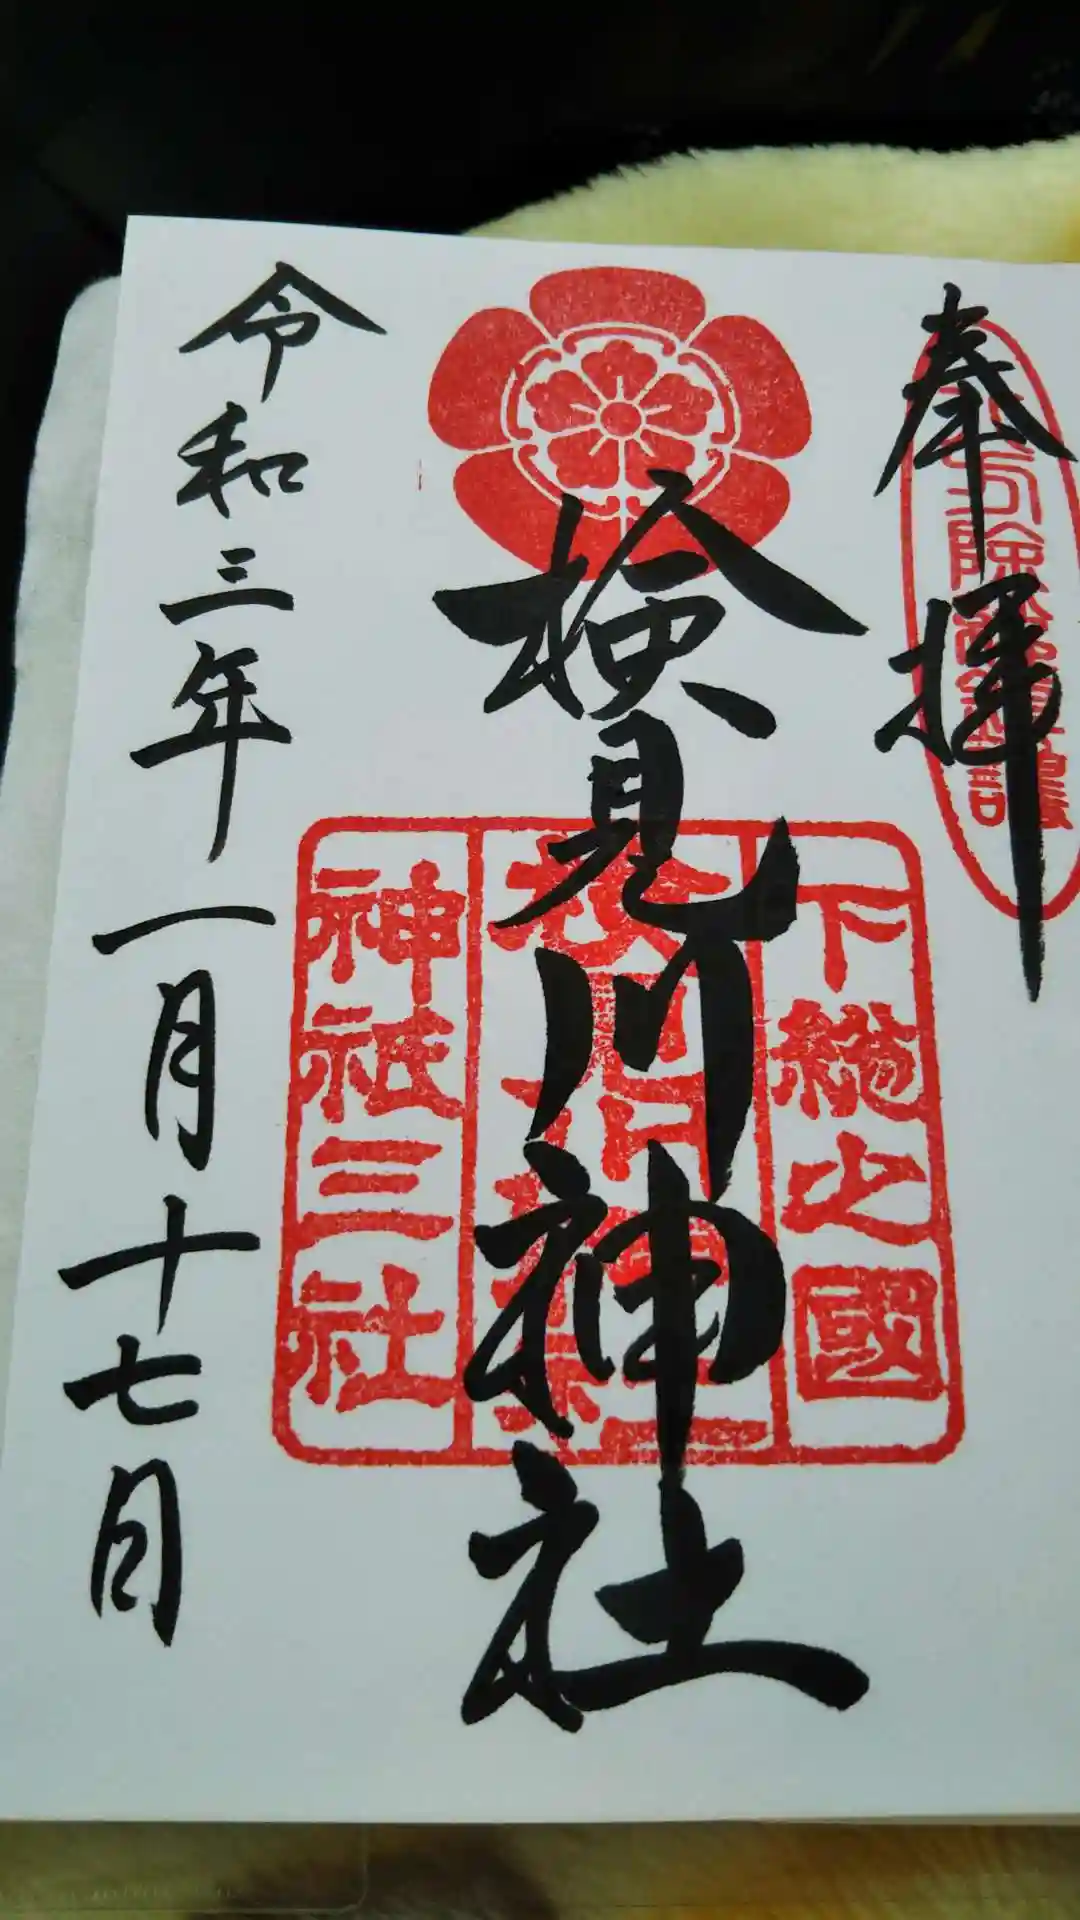 奉拝
検見川神社
下総之國
神祇三社
令和三年一月十七日